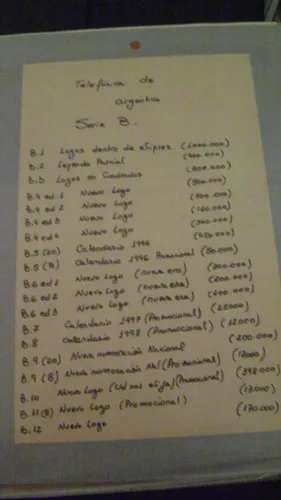 Telefónica de
Argentina
Serie B.
B.1 Logos dentro de elipses (1000.000)
B.2 Leyenda Parcial (400.000)
B.3 Logos en Cuadrados (800.000)
B.4 ed 1 Nuevo Logo (500.000)
B.4 ed 2 Nuevo Logo
B.4 ed 3 Nuevo Logo
B.4 ed 4 Nuevo Logo
B.5 (20) Calendario 1996
B.5 (8) Calendario 1996 Promocional (50.000)
B.6 ed 1 Nuevo Logo (nueva era) (200.000)
B.6 ed 2 Nuevo Logo (nueva era) (200.000)
B.6 ed 3 Nuevo Logo (nueva era) (200.000)
B.7 Calendario 1997 (Promocional)
B.8 Calendario 1998 (Promocional) (12000)
B.9 (20) Nueva numeración Nacional (200.000)
B.9 (8) Nueva numeración (Promocional)
B.10 Nuevo Logo (Promocional) (398.000)
B.11 (8) Nuevo Logo (Promocional) (12.000)
B.12 Nuevo Logo (170.000)